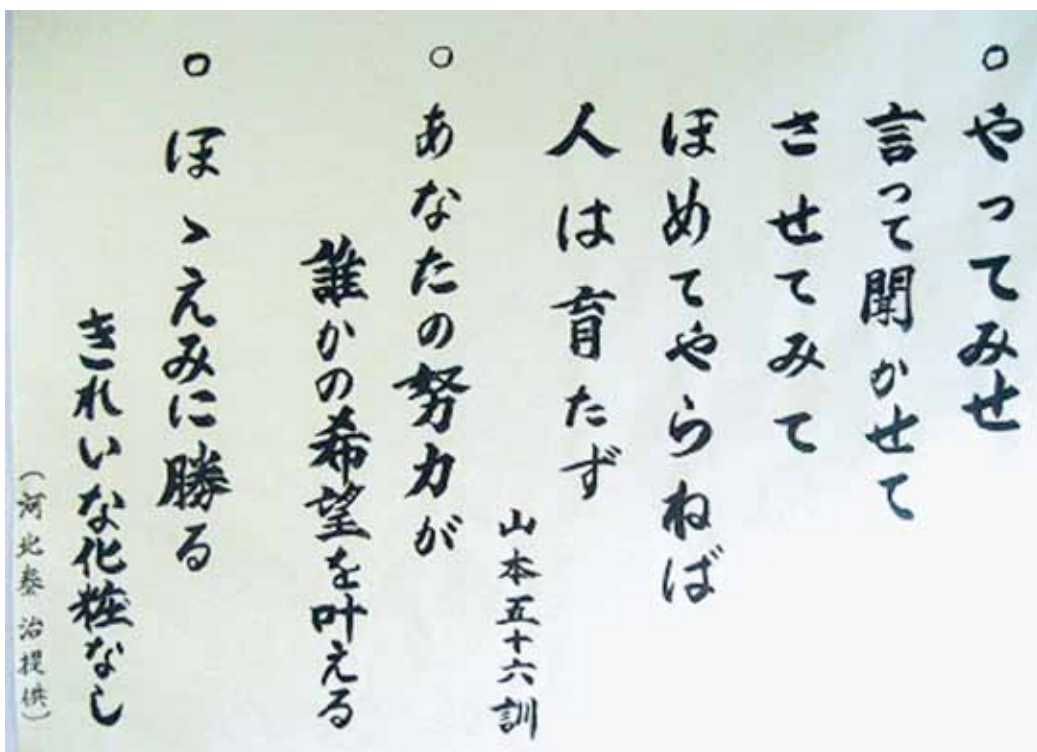 ○ やってみせ
言って聞かせて
させてみて
ほめてやらねば
人は育たず
山本五十六訓
○ あなたの努力が
誰かの希望を叶える
○ ほゝえみに勝る
きれいな化粧なし
(河北泰治提供)